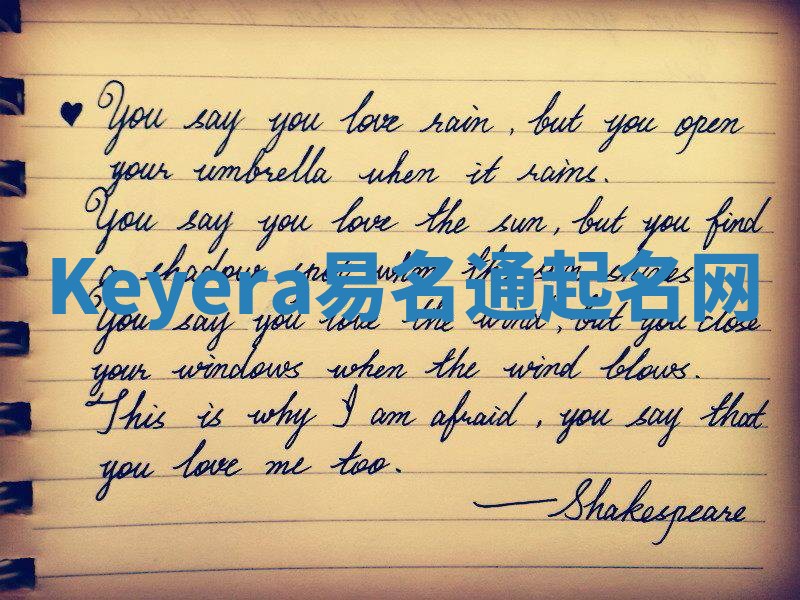 ♥ You say you love rain, but you open
your umbrella when it rains.
You say you love the sun, but you find
a shadow spot when the sun shines
Keyera易名通起名网
You say you love the wind, but you close
your windows when the wind blows.
This is why I am afraid, you say that
you love me too.
— Shakespeare